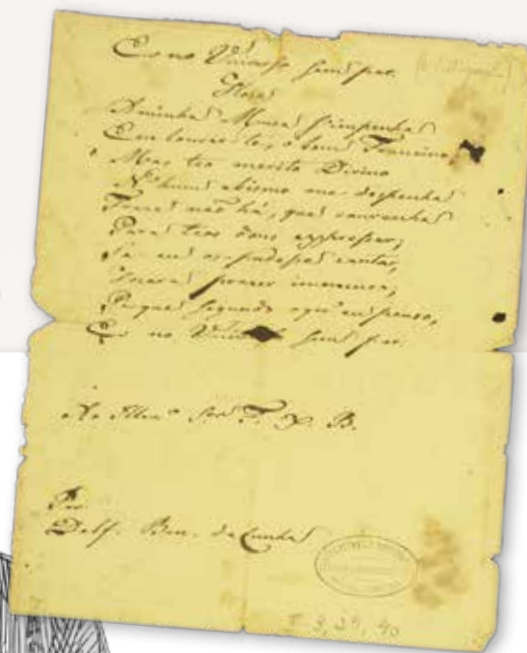 Es no Universo sem par.
Glosa
A minha Musa s'impenha
Em louvar-te, o bom Francino,
Mas teo merito Divino
N'hum abismo me despenha
Frase não há, que convenha
Para teos dons expressar,
Se eu os podesse cantar,
Porque segundo o qu'eu penso,
Es no Universo sem par.
Ao Illmo Snr F. B.
Por
Delf. Ben. da Cunha
I 3, 29, 90